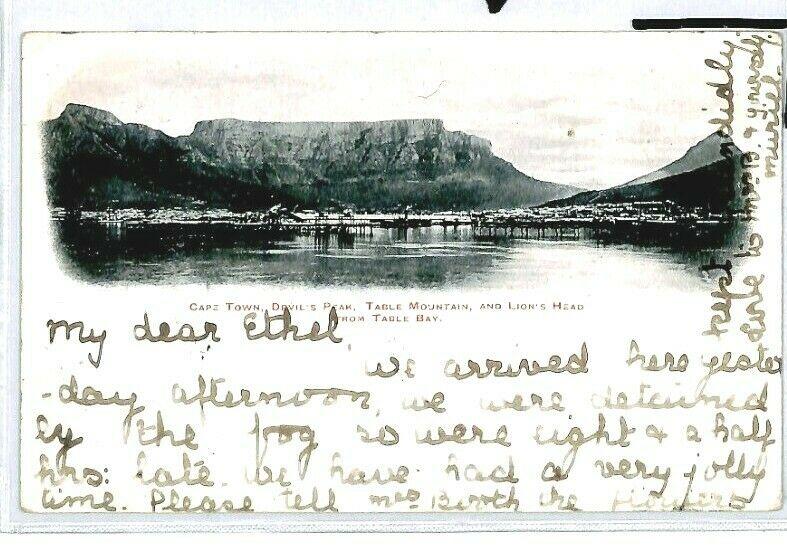 CAPE TOWN, DEVIL'S PEAK, TABLE MOUNTAIN, AND LION'S HEAD
FROM TABLE BAY.
My dear Ethel,
We arrived here yester
-day afternoon, we were detained
by the fog so were eight & a half
hrs: late. we have had a very jolly
time. Please tell Mrs Booth the flowers
kept splendidly.
Love to Mrs B. & yourself
Muriel.